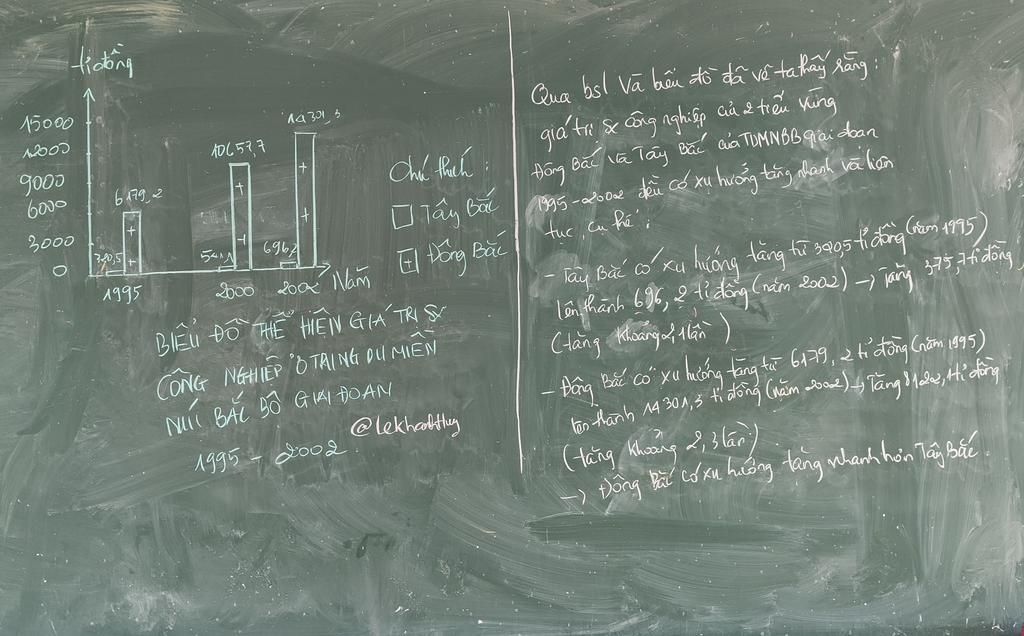 tỉ đồng
15000
12000
9000
6000
3000
0
320,5
6179,2
541,1
10657,7
696,2
14301,3
1995
2000
2002
Năm
Chú thích :
Tây Bắc
+ Đông Bắc
BIỂU ĐỒ THỂ HIỆN GIÁ TRỊ SX
CÔNG NGHIỆP Ở TRUNG DU MIỀN
NÚI BẮC BỘ GIAI ĐOẠN
1995 - 2002.
@lekhanhthuy
Qua bsl và biểu đồ đã vẽ ta thấy rằng :
giá trị sx công nghiệp của 2 tiểu vùng
Đông Bắc và Tây Bắc của TDMNBB giai đoạn
1995-2002 đều có xu hướng tăng nhanh và liên
tục cụ thể :
- Tây Bắc có xu hướng tăng từ 320,5 tỉ đồng (năm 1995)
lên thành 696,2 tỉ đồng (năm 2002) → Tăng 375,7 tỉ đồng
(tăng khoảng 2,1 lần)
- Đông Bắc có xu hướng tăng từ 6179,2 tỉ đồng (năm 1995)
lên thành 14301,3 tỉ đồng (năm 2002) → Tăng 8122,1 tỉ đồng
(tăng khoảng 2,3 lần)
→ Đông Bắc có xu hướng tăng nhanh hơn Tây Bắc.